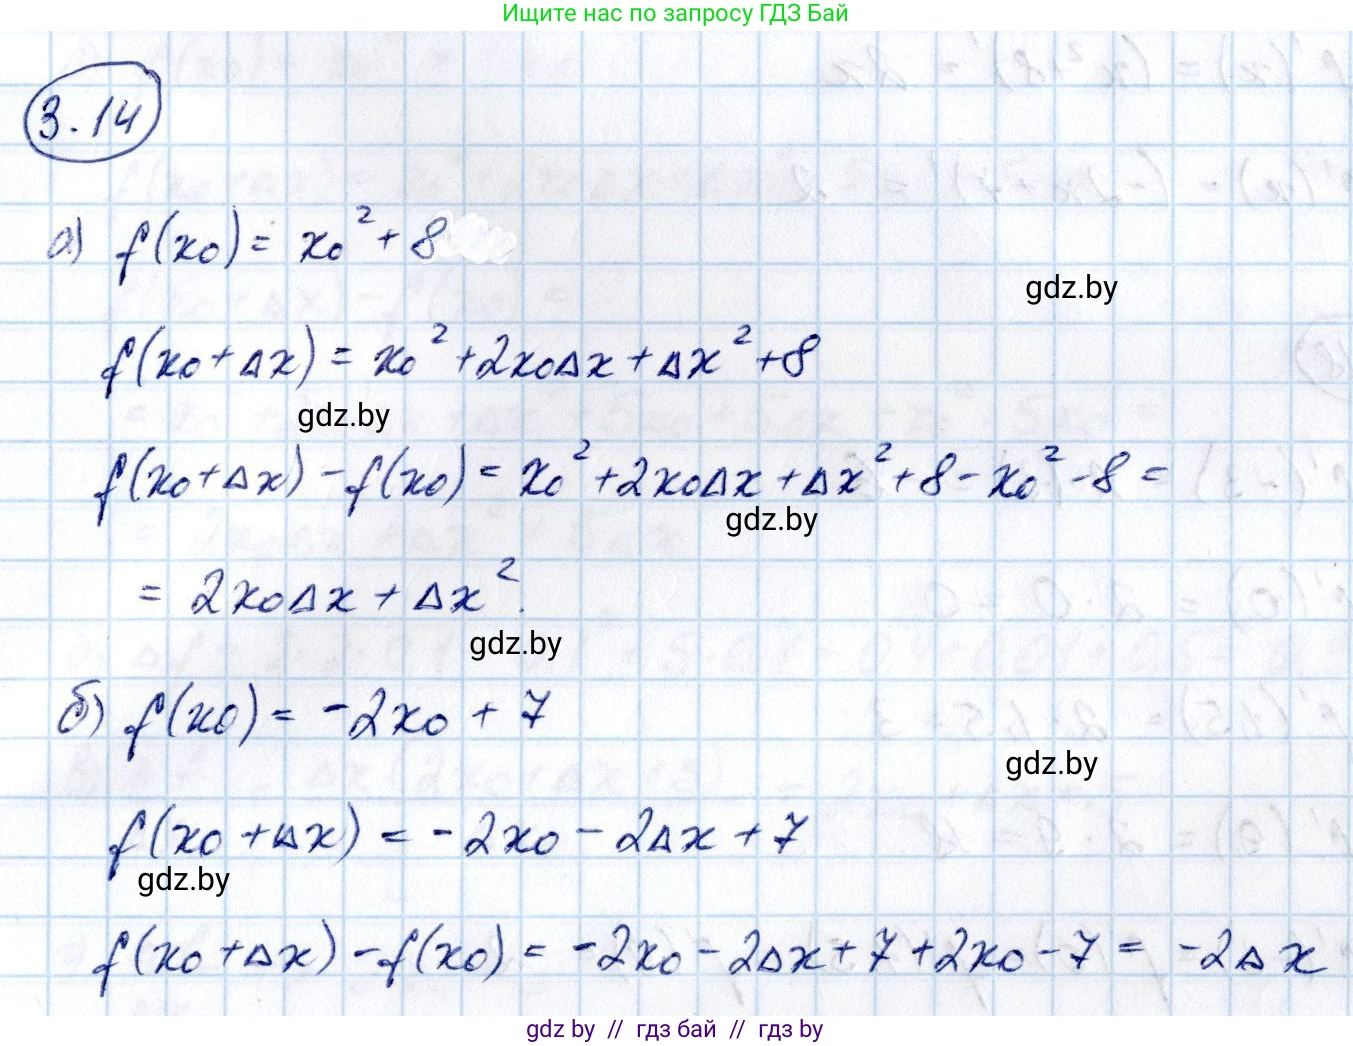 Ищите нас по запросу ГДЗ Бай
3.14
а) f(x₀) = x₀² + 8
gdz.by
f(x₀ + Δx) = x₀² + 2x₀Δx + Δx² + 8
gdz.by
f(x₀ + Δx) - f(x₀) = x₀² + 2x₀Δx + Δx² + 8 - x₀² - 8 =
gdz.by
= 2x₀Δx + Δx².
gdz.by
б) f(x₀) = -2x₀ + 7
gdz.by
f(x₀ + Δx) = -2x₀ - 2Δx + 7
gdz.by
f(x₀ + Δx) - f(x₀) = -2x₀ - 2Δx + 7 + 2x₀ - 7 = -2Δx
gdz by // гдз бай // гдз by